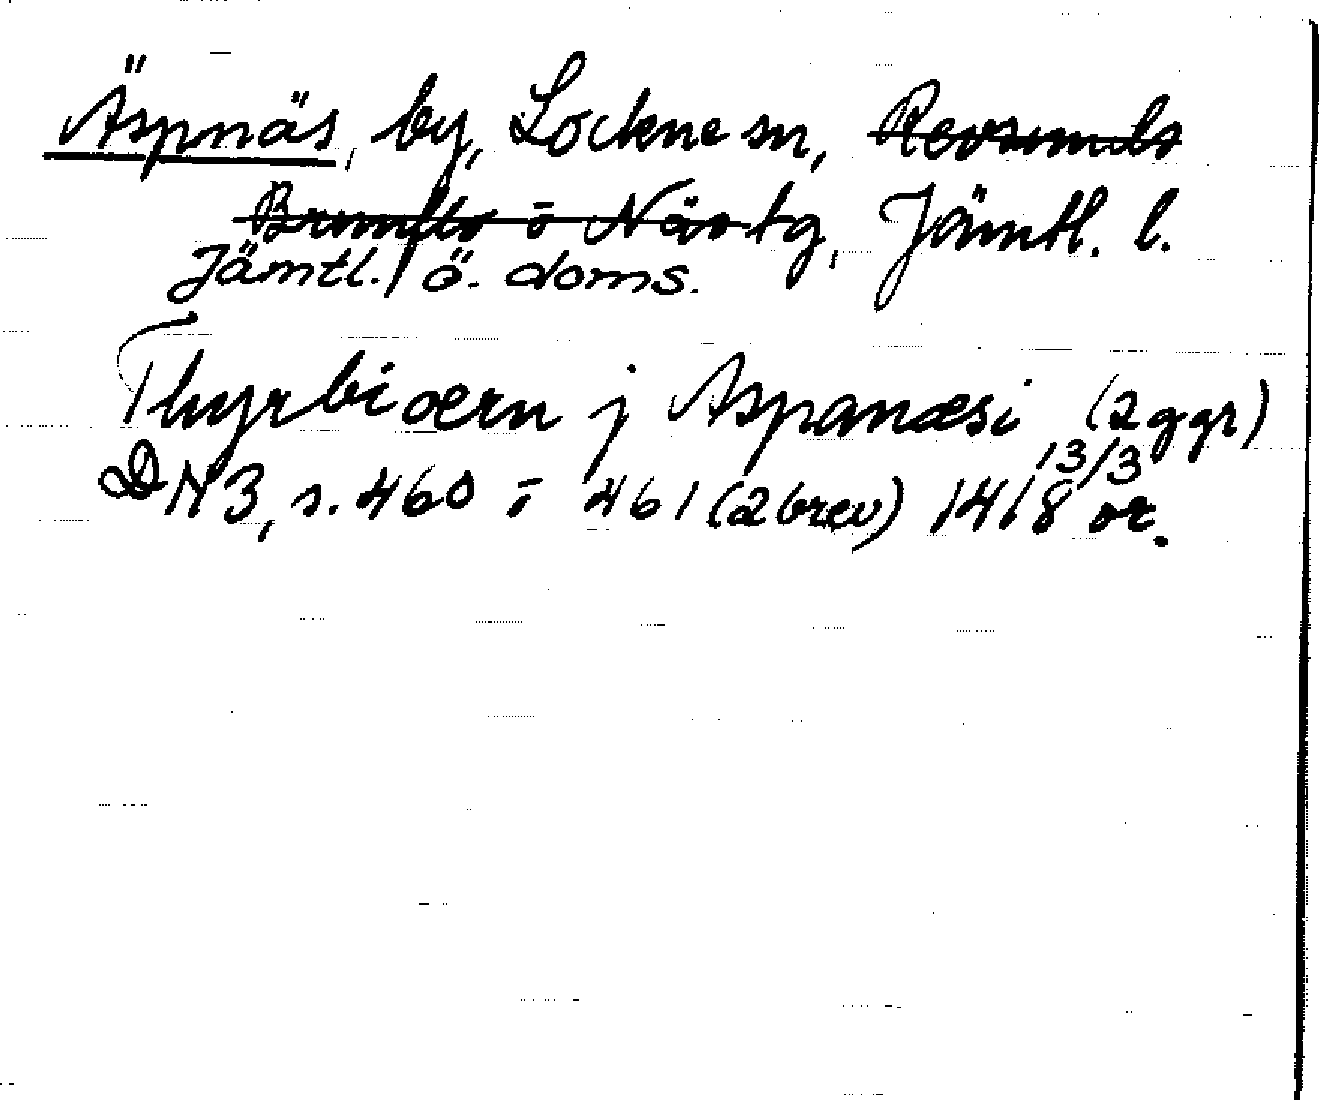 Äspnäs, by, Lockne sn, Revsunds
Brunflo o Näs tg, Jämtl. l.
Jämtl. ö. doms.
Thyrbioern j Aspanæsi (2 ggr)
DN 3, s. 460 o 461 (2 brev) 1418 13/3 or.